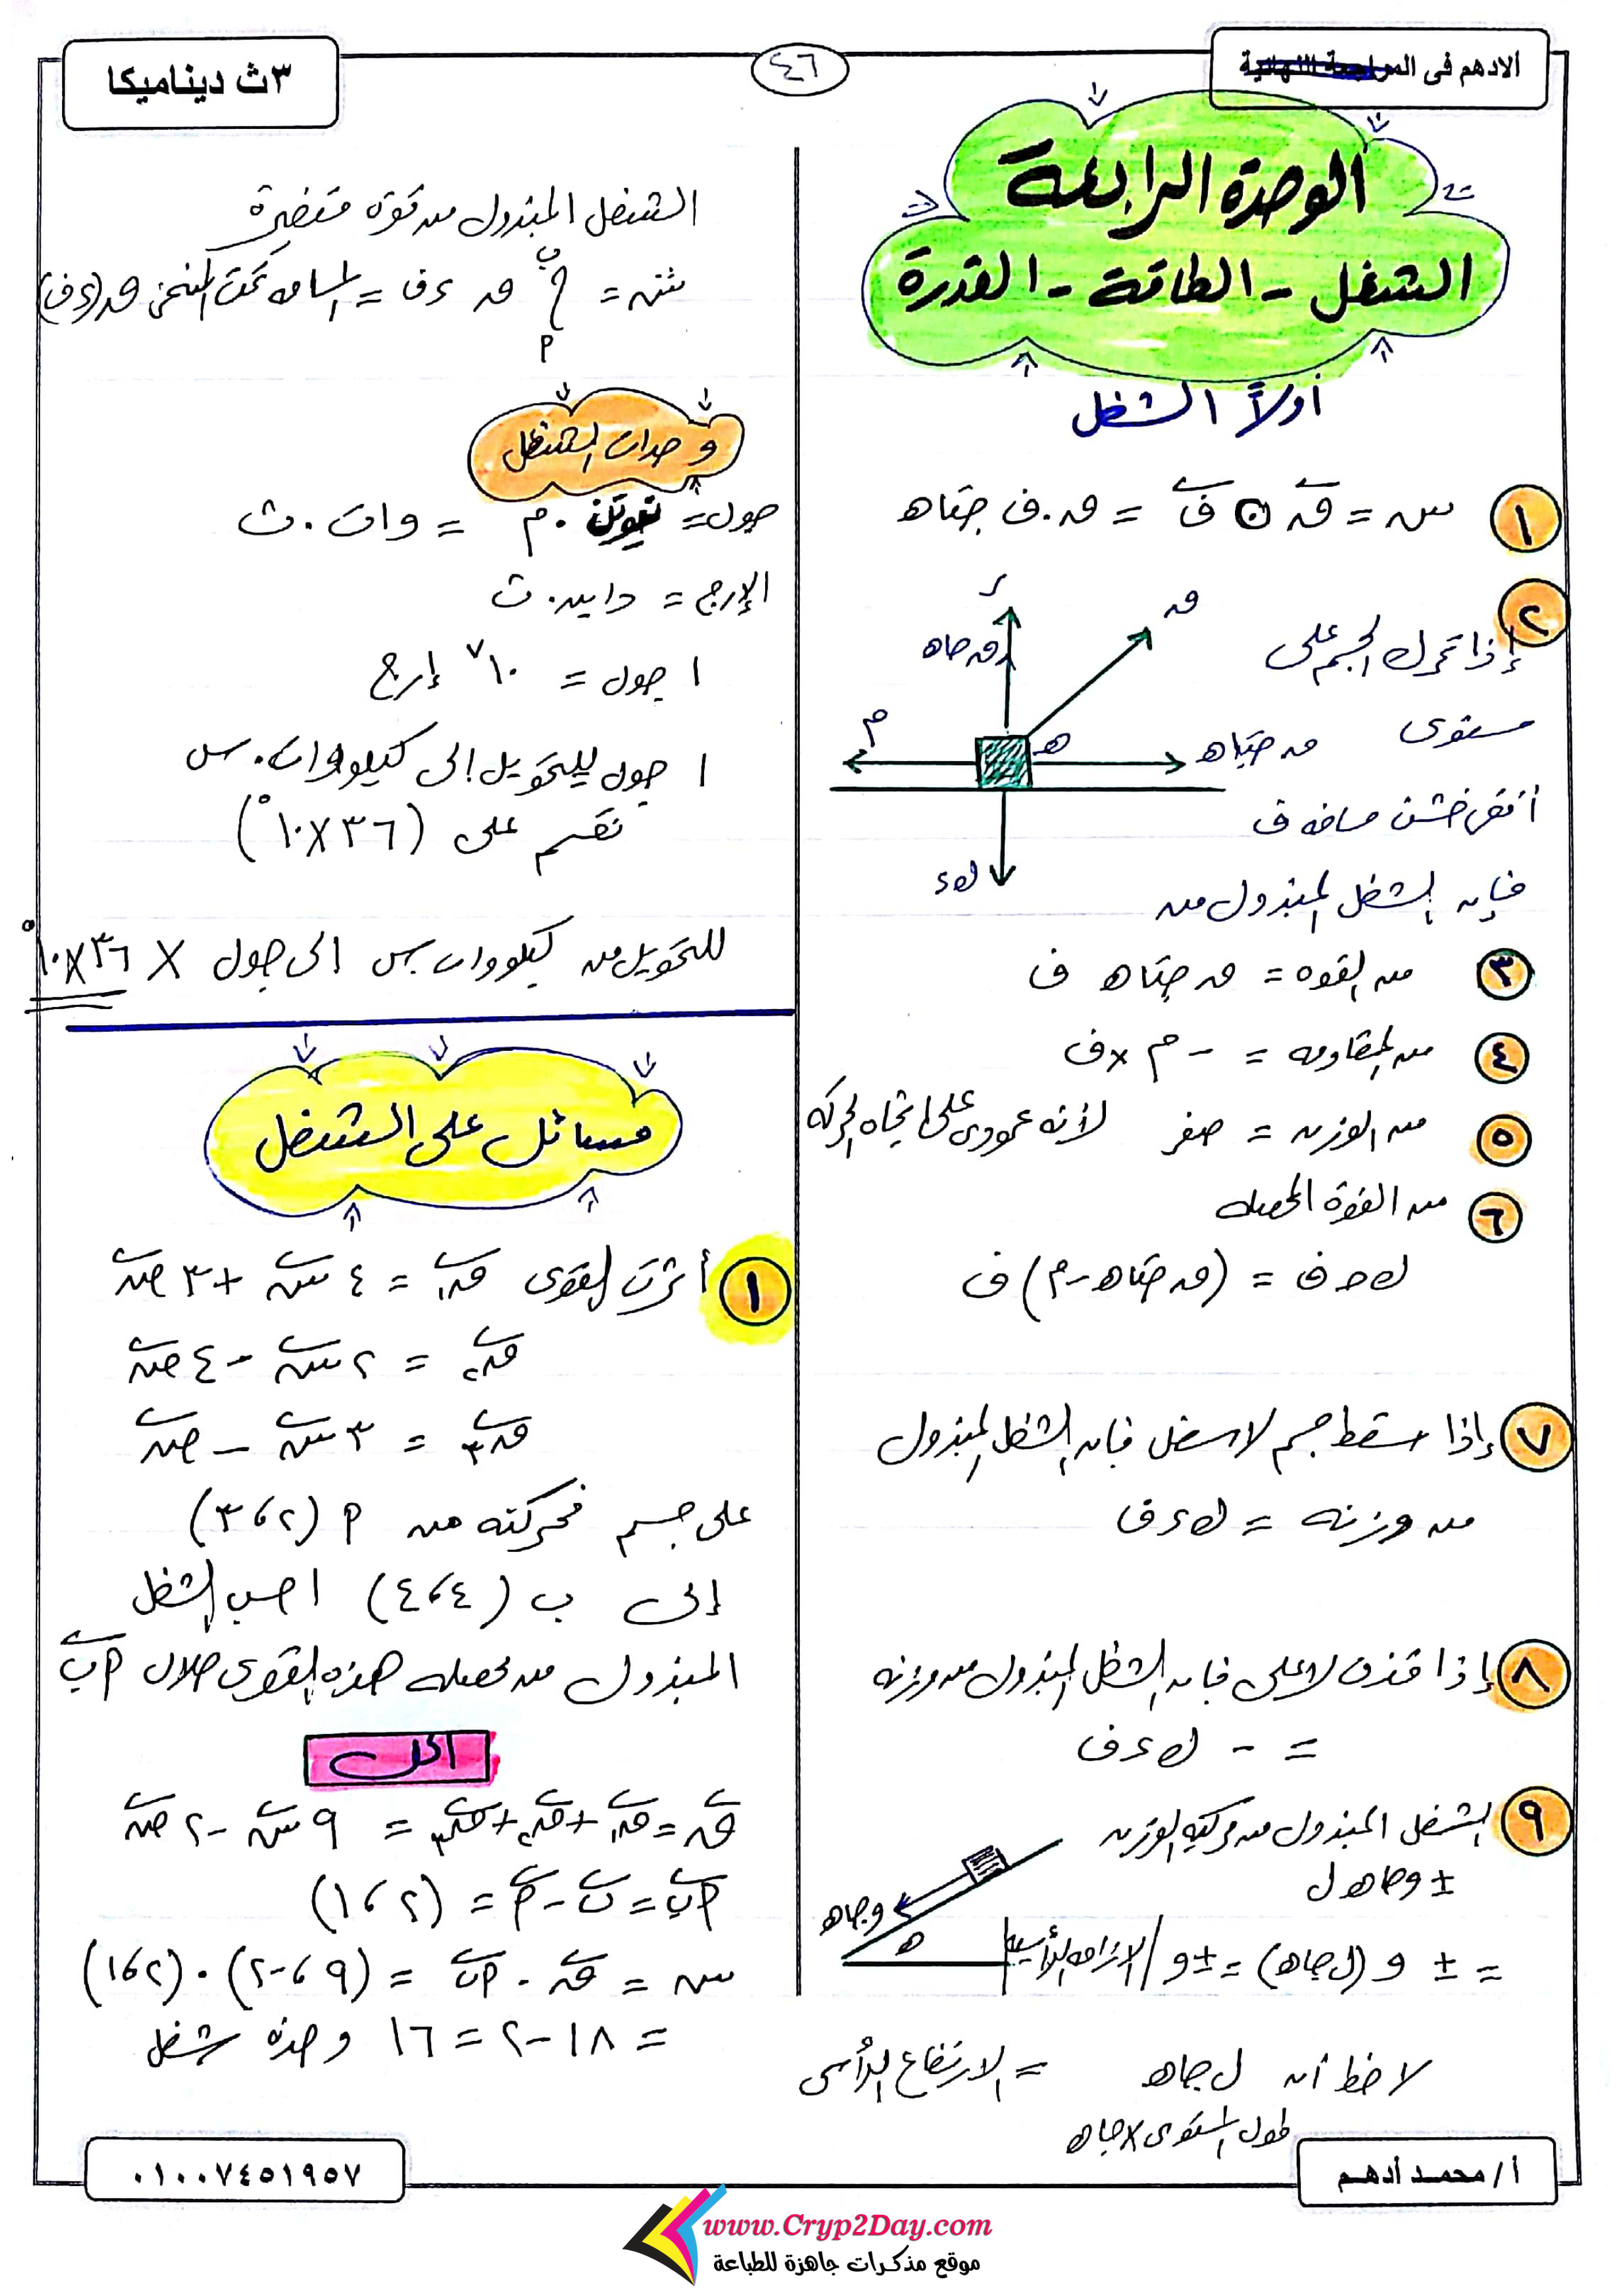 الادهم فى المراجعة النهائية
٤٦
٣ث ديناميكا
الوحدة الرابعة
الشغل - الطاقة - القدرة
أولاً الشغل
١ ش = ق ⊙ ف = ق . ف جتاه
٢ إذا تحرك الجسم على
مستوى
أفقى خشن مسافه ف
فإن الشغل المبذول من
ر
ق
ق جاه
م
ه
ق جتاه
ك ء
٣ من القوه = ق جتاه ف
٤ من المقاومه = - م × ف
٥ من الوزن = صفر لأنه عمودى على اتجاه الحركه
٦ من القوة المحصله
ك ح ف = (ق جتاه - م) ف
٧ إذا سقط جسم لاسفل فإن الشغل المبذول
من وزنه = ك ء ف
٨ إذا قذف لاعلى فإن الشغل المبذول من وزنه
= - ك ء ف
٩ الشغل المبذول من مركبه الوزن
± و جاه ل
و جاه
ه
= ± و (ل جاه) = ± و / الازاحه الرأسيه
لاحظ أن ل جاه = الارتفاع الرأسى
طول المستوى × جاه
الشغل المبذول من قوة متغيرة
ش = ∫ ق ء ف = المساحه تحت المنحنى ق (ء ف)
ب
م
وحدات الشغل
جول = نيوتن . م = وات . ث
الإرج = داين . ث
١ جول = ١٠^٧ إرج
١ جول للتحويل إلى كيلووات . س
نقسم على (٣٦ × ١٠^٥)
للتحويل من كيلووات س الى جول × ٣٦ × ١٠^٥
مسائل على الشغل
١ أثرت القوى ق١ = ٤ س + ٣ ص
ق٢ = ٢ س - ٤ ص
ق٣ = ٣ س - ص
على جسم فحركته من م (٢ ، ٣)
إلى ب (٤ ، ٤) احسب الشغل
المبذول من محصله هذه القوى خلال م ب
الحل
ق = ق١ + ق٢ + ق٣ = ٩ س - ٢ ص
م ب = ب - م = (٢ ، ١)
ش = ق . م ب = (٩ ، -٢) . (٢ ، ١)
= ١٨ - ٢ = ١٦ وحدة شغل
أ / محمد أدهم
٠١٠٠٧٤٥١٩٥٧
www.Cryp2Day.com
موقع مذكرات جاهزة للطباعة